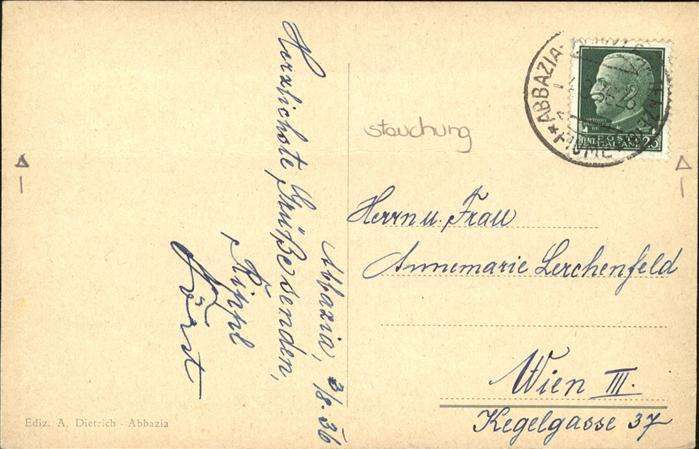 Abbazia, 3/8.36
Herzlichste Grüße senden,
Rippl
stauchung
ABBAZIA
FIUME
POSTE ITALIANE 25
Herrn u. Frau
Annemarie Lerchenfeld
Wien III.
Kegelgasse 37
Ediz. A. Dietrich - Abbazia